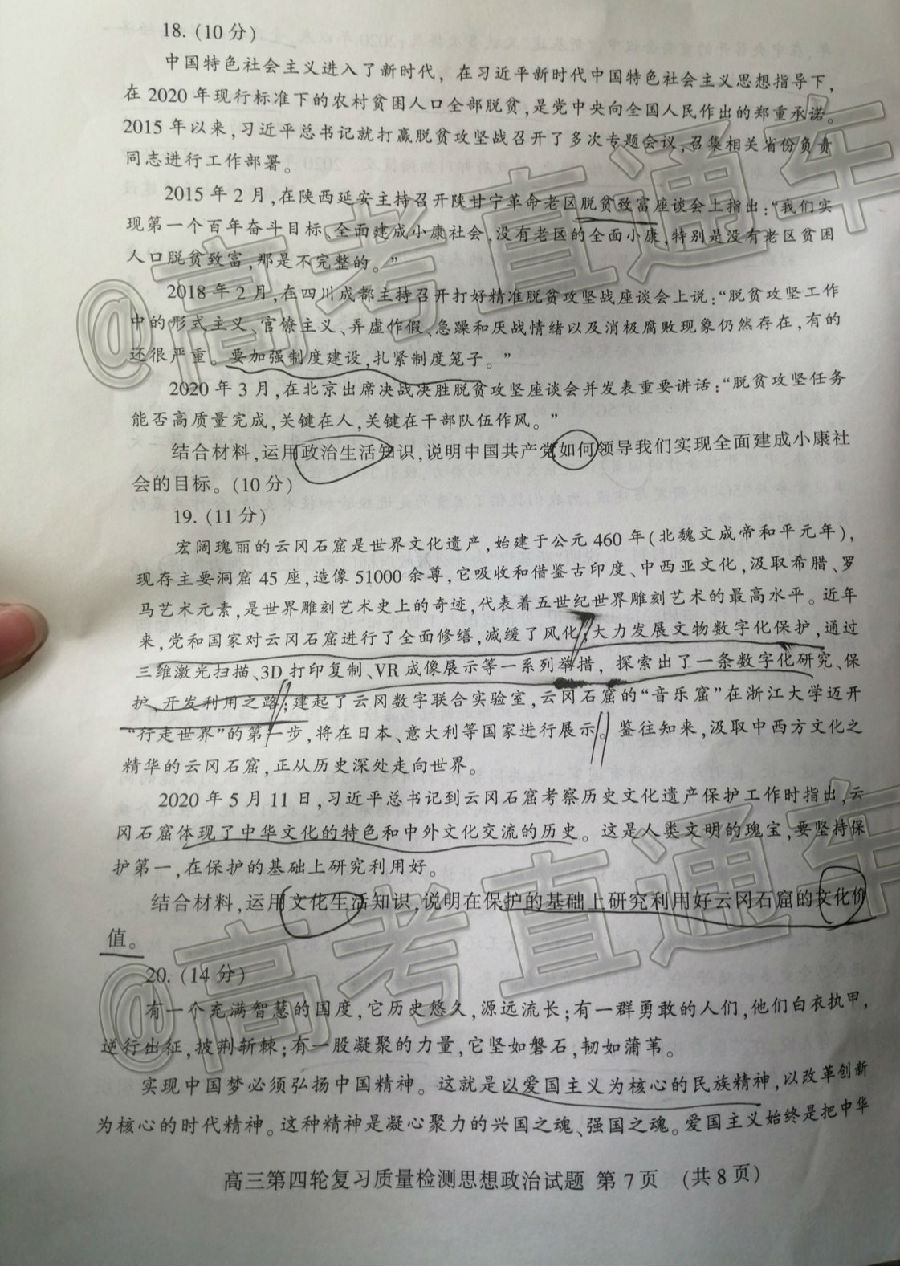 18. (10 分)
中国特色社会主义进入了新时代，在习近平新时代中国特色社会主义思想指导下，
在 2020 年现行标准下的农村贫困人口全部脱贫，是党中央向全国人民作出的郑重承诺。
2015 年以来，习近平总书记就打赢脱贫攻坚战召开了多次专题会议，召集相关省份负责
同志进行工作部署。
2015 年 2 月，在陕西延安主持召开陕甘宁革命老区脱贫致富座谈会上指出：“我们实
现第一个百年奋斗目标、全面建成小康社会，没有老区的全面小康，特别是没有老区贫困
人口脱贫致富，那是不完整的。”
2018 年 2 月，在四川成都主持召开打好精准脱贫攻坚战座谈会上说：“脱贫攻坚工作
中的形式主义、官僚主义、弄虚作假、急躁和厌战情绪以及消极腐败现象仍然存在，有的
还很严重。要加强制度建设，扎紧制度笼子。”
2020 年 3 月，在北京出席决战决胜脱贫攻坚座谈会并发表重要讲话：“脱贫攻坚任务
能否高质量完成，关键在人，关键在干部队伍作风。”
结合材料，运用政治生活知识，说明中国共产党如何领导我们实现全面建成小康社
会的目标。(10 分)
19. (11 分)
宏阔瑰丽的云冈石窟是世界文化遗产，始建于公元 460 年(北魏文成帝和平元年)，
现存主要洞窟 45 座，造像 51000 余尊，它吸收和借鉴古印度、中西亚文化，汲取希腊、罗
马艺术元素，是世界雕刻艺术史上的奇迹，代表着五世纪世界雕刻艺术的最高水平。近年
来，党和国家对云冈石窟进行了全面修缮，减缓了风化；大力发展文物数字化保护，通过
三维激光扫描、3D 打印复制、VR 成像展示等一系列举措，探索出了一条数字化研究、保
护、开发利用之路；建起了云冈数字联合实验室，云冈石窟的“音乐窟”在浙江大学迈开
“行走世界”的第一步，将在日本、意大利等国家进行展示。鉴往知来，汲取中西方文化之
精华的云冈石窟，正从历史深处走向世界。
2020 年 5 月 11 日，习近平总书记到云冈石窟考察历史文化遗产保护工作时指出，云
冈石窟体现了中华文化的特色和中外文化交流的历史。这是人类文明的瑰宝，要坚持保
护第一，在保护的基础上研究利用好。
结合材料，运用文化生活知识，说明在保护的基础上研究利用好云冈石窟的文化价
值。
20. (14 分)
有一个充满智慧的国度，它历史悠久，源远流长；有一群勇敢的人们，他们白衣执甲，
逆行出征，披荆斩棘；有一股凝聚的力量，它坚如磐石，韧如蒲苇。
实现中国梦必须弘扬中国精神。这就是以爱国主义为核心的民族精神，以改革创新
为核心的时代精神。这种精神是凝心聚力的兴国之魂、强国之魂。爱国主义始终是把中华
高三第四轮复习质量检测思想政治试题 第 7 页 (共 8 页)
@高考直通车
@高考直通车